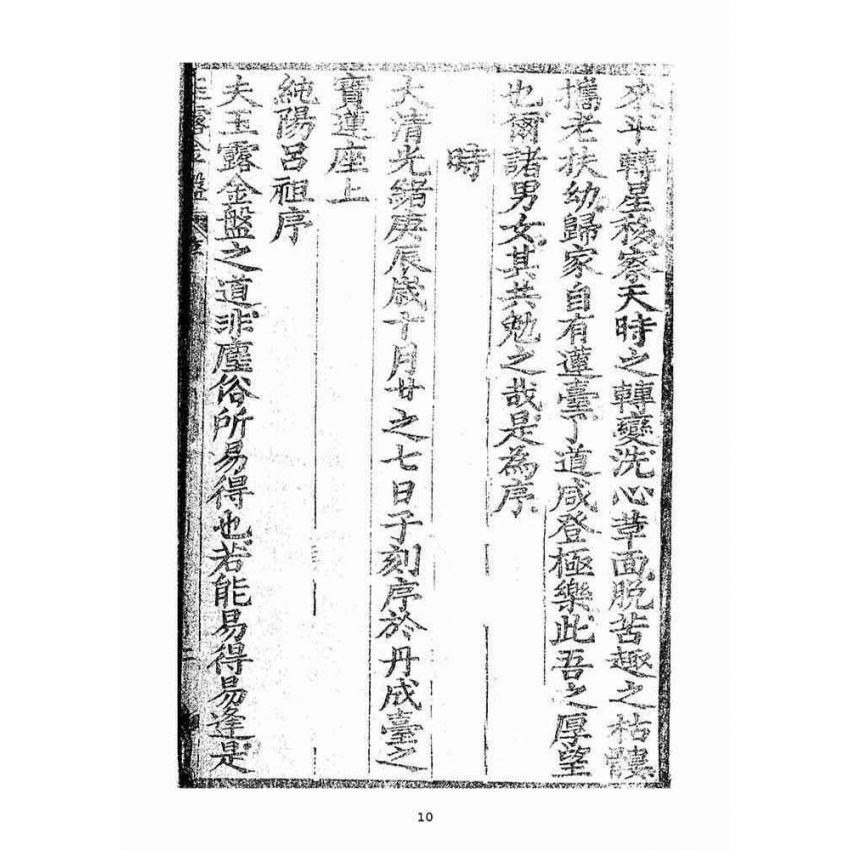 來斗轉星移察天時之轉變洗心革面脫苦趣之枯髏
攜老扶幼歸家自有蓮臺了道咸登極樂此吾之厚望
也爾諸男女其共勉之哉是為序
時
大清光緒庚辰歲十月廿之七日子刻序於丹成臺之
寶蓮座上
純陽呂祖序
夫玉露金盤之道非塵俗所易得也若能易得易逢是
玉露金盤 序 二
10